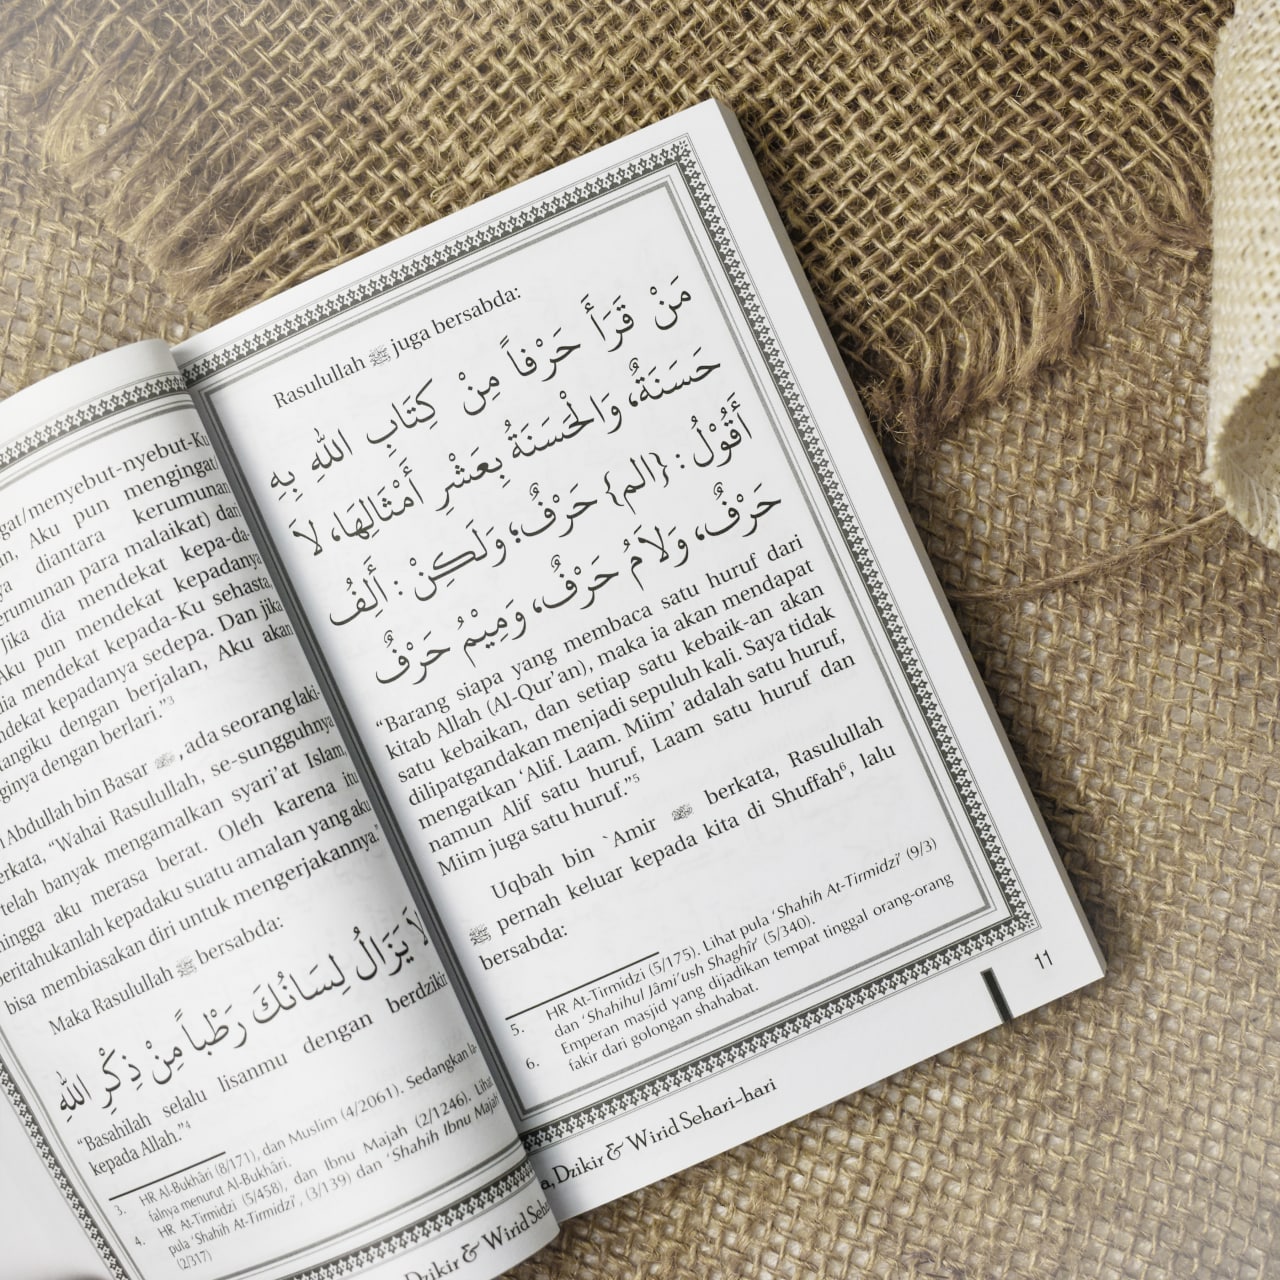 gat/menyebut-nyebut-Ku
Aku pun mengingat
diantara kerumunan
para malaikat) dan
Jika dia mendekat kepa-da-
Aku pun mendekat kepadanya
dia mendekat kepada-Ku sehasta,
kepadanya sedepa. Dan jika
dengan berjalan, Aku akan
dengan berlari.”³
Abdullah bin Basar ﷺ, ada seorang laki-
“Wahai Rasulullah, se-sungguhnya
telah banyak mengamalkan syari’at Islam,
aku merasa berat. Oleh karena itu
kepadaku suatu amalan yang aku
bisa membiasakan diri untuk mengerjakannya.”
Maka Rasulullah ﷺ bersabda:
لَا يَزَالُ لِسَانُكَ رَطْباً مِنْ ذِكْرِ اللهِ
“Basahilah selalu lisanmu dengan berdzikir
kepada Allah.”⁴
3. HR Al-Bukhâri (8/171), dan Muslim (4/2061). Sedangkan la-
falnya menurut Al-Bukhâri.
4. HR At-Tirmidzi (5/458), dan Ibnu Majah (2/1246). Lihat
pula ‘Shahih At-Tirmidzi’, (3/139) dan ‘Shahih Ibnu Majah
(2/317)
Dzikir & Wirid
Rasulullah ﷺ juga bersabda:
مَنْ قَرَأَ حَرْفاً مِنْ كِتَابِ اللهِ بِهِ
حَسَنَةٌ، وَالْحَسَنَةُ بِعَشْرِ أَمْثَالِهَا، لَا
أَقُوْلُ : {الم} حَرْفٌ؛ وَلَكِنْ : أَلِفُ
حَرْفٌ، وَلَامُ حَرْفٌ، وَمِيْمُ حَرْفٌ
“Barang siapa yang membaca satu huruf dari
kitab Allah (Al-Qur’an), maka ia akan mendapat
satu kebaikan, dan setiap satu kebaik-an akan
dilipatgandakan menjadi sepuluh kali. Saya tidak
mengatkan ‘Alif. Laam. Miim’ adalah satu huruf,
namun Alif satu huruf, Laam satu huruf dan
Miim juga satu huruf.”⁵
Uqbah bin `Amir berkata, Rasulullah
ﷺ pernah keluar kepada kita di Shuffah⁶, lalu
bersabda:
5. HR At-Tirmidzi (5/175). Lihat pula ‘Shahih At-Tirmidzi’ (9/3)
dan ‘Shahihul Jâmi’ush Shaghîr’ (5/340).
6. Emperan masjid yang dijadikan tempat tinggal orang-orang
fakir dari golongan shahabat.
Dzikir & Wirid Sehari-hari
11